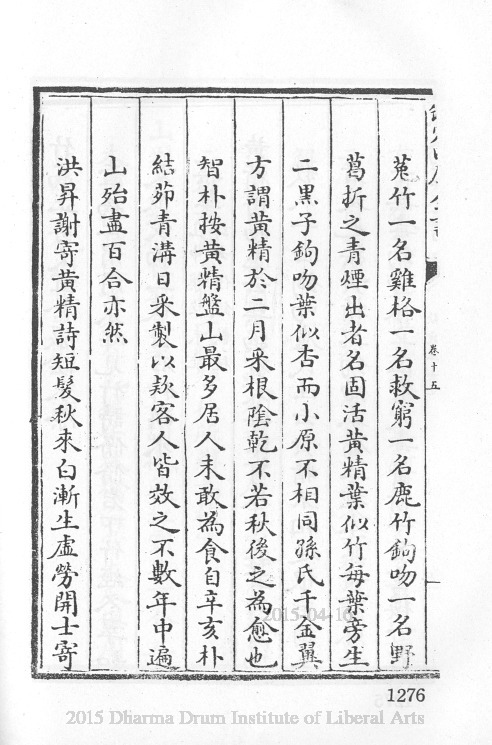 菟竹一名雞格一名救窮一名鹿竹鉤吻一名野
葛折之青煙出者名固活黃精葉似竹每葉旁生
二黑子鉤吻葉似杏而小原不相同孫氏千金翼
方謂黃精於二月采根陰乾不若秋後之為愈也
智朴按黃精盤山最多居人未敢為食自辛亥朴
結茆青溝日采製以款客人皆效之不數年中遍
山殆盡百合亦然
洪昇謝寄黃精詩短髮秋來白漸生虛勞開士寄
卷十五
2015-04-16
1276
2015 Dharma Drum Institute of Liberal Arts